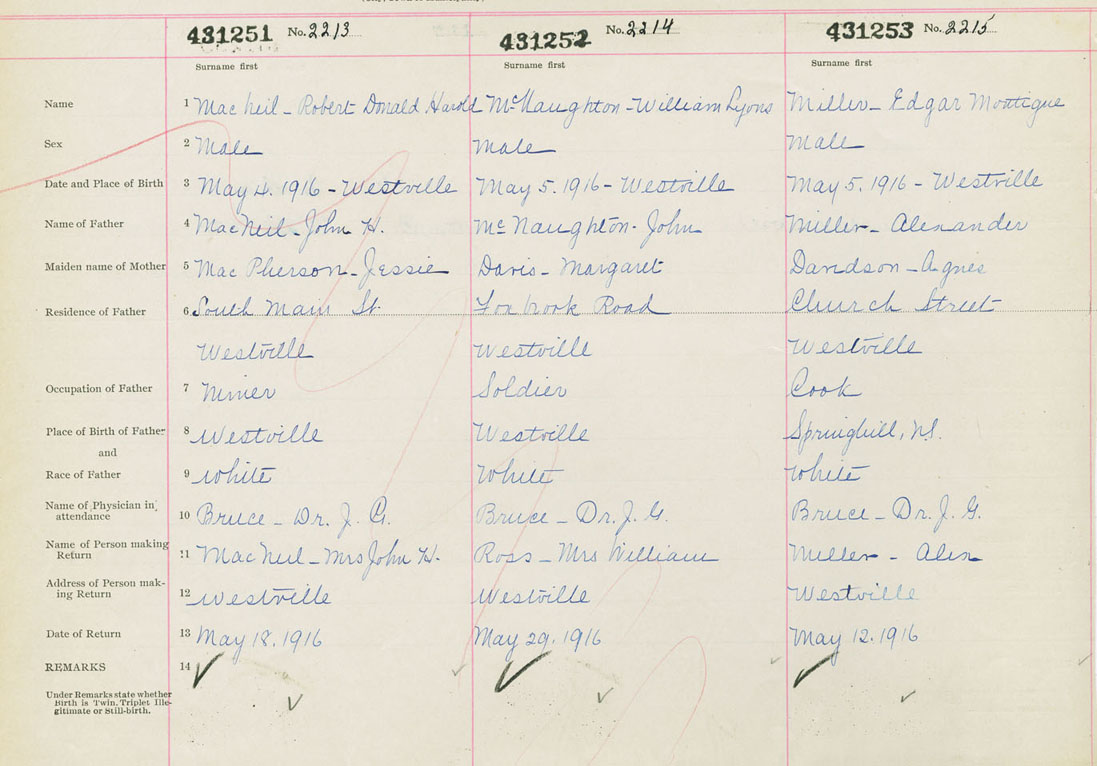 431251 No. 2213 431252 No. 2214 431253 No. 2215
Surname first Surname first Surname first
Name 1 MacNeil - Robert Donald Harold McNaughton - William Lyons Miller - Edgar Montigue
Sex 2 Male Male Male
Date and Place of Birth 3 May 4. 1916 - Westville May 5. 1916 - Westville May 5. 1916 - Westville
Name of Father 4 MacNeil - John H. McNaughton - John Miller - Alexander
Maiden name of Mother 5 MacPherson - Jessie Davis - Margaret Davidson - Agnes
Residence of Father 6 South Main St. Foxbrook Road Church Street
Westville Westville Westville
Occupation of Father 7 Miner Soldier Cook
Place of Birth of Father 8 Westville Westville Springhill, NS.
and
Race of Father 9 White White White
Name of Physician in
attendance 10 Bruce - Dr. J. G. Bruce - Dr. J. G. Bruce - Dr. J. G.
Name of Person making
Return 11 MacNeil - Mrs John H. Ross - Mrs William Miller - Alex
Address of Person mak-
ing Return 12 Westville Westville Westville
Date of Return 13 May 18. 1916 May 29. 1916 May 12. 1916
REMARKS 14
Under Remarks state whether
Birth is Twin. Triplet Ille-
gitimate or Still-birth.